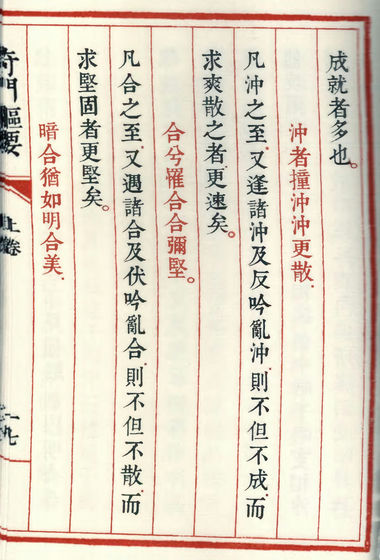 成就者多也。
沖者撞沖沖更散.
凡沖之至.又逢諸沖及反吟亂沖.則不但不成而
求爽散之者.更速矣。
合兮罹合合彌堅。
凡合之至.又遇諸合及伏吟亂合.則不但不散而
求堅固者更堅矣.
暗合猶如明合美.
奇門樞要
上卷
一九